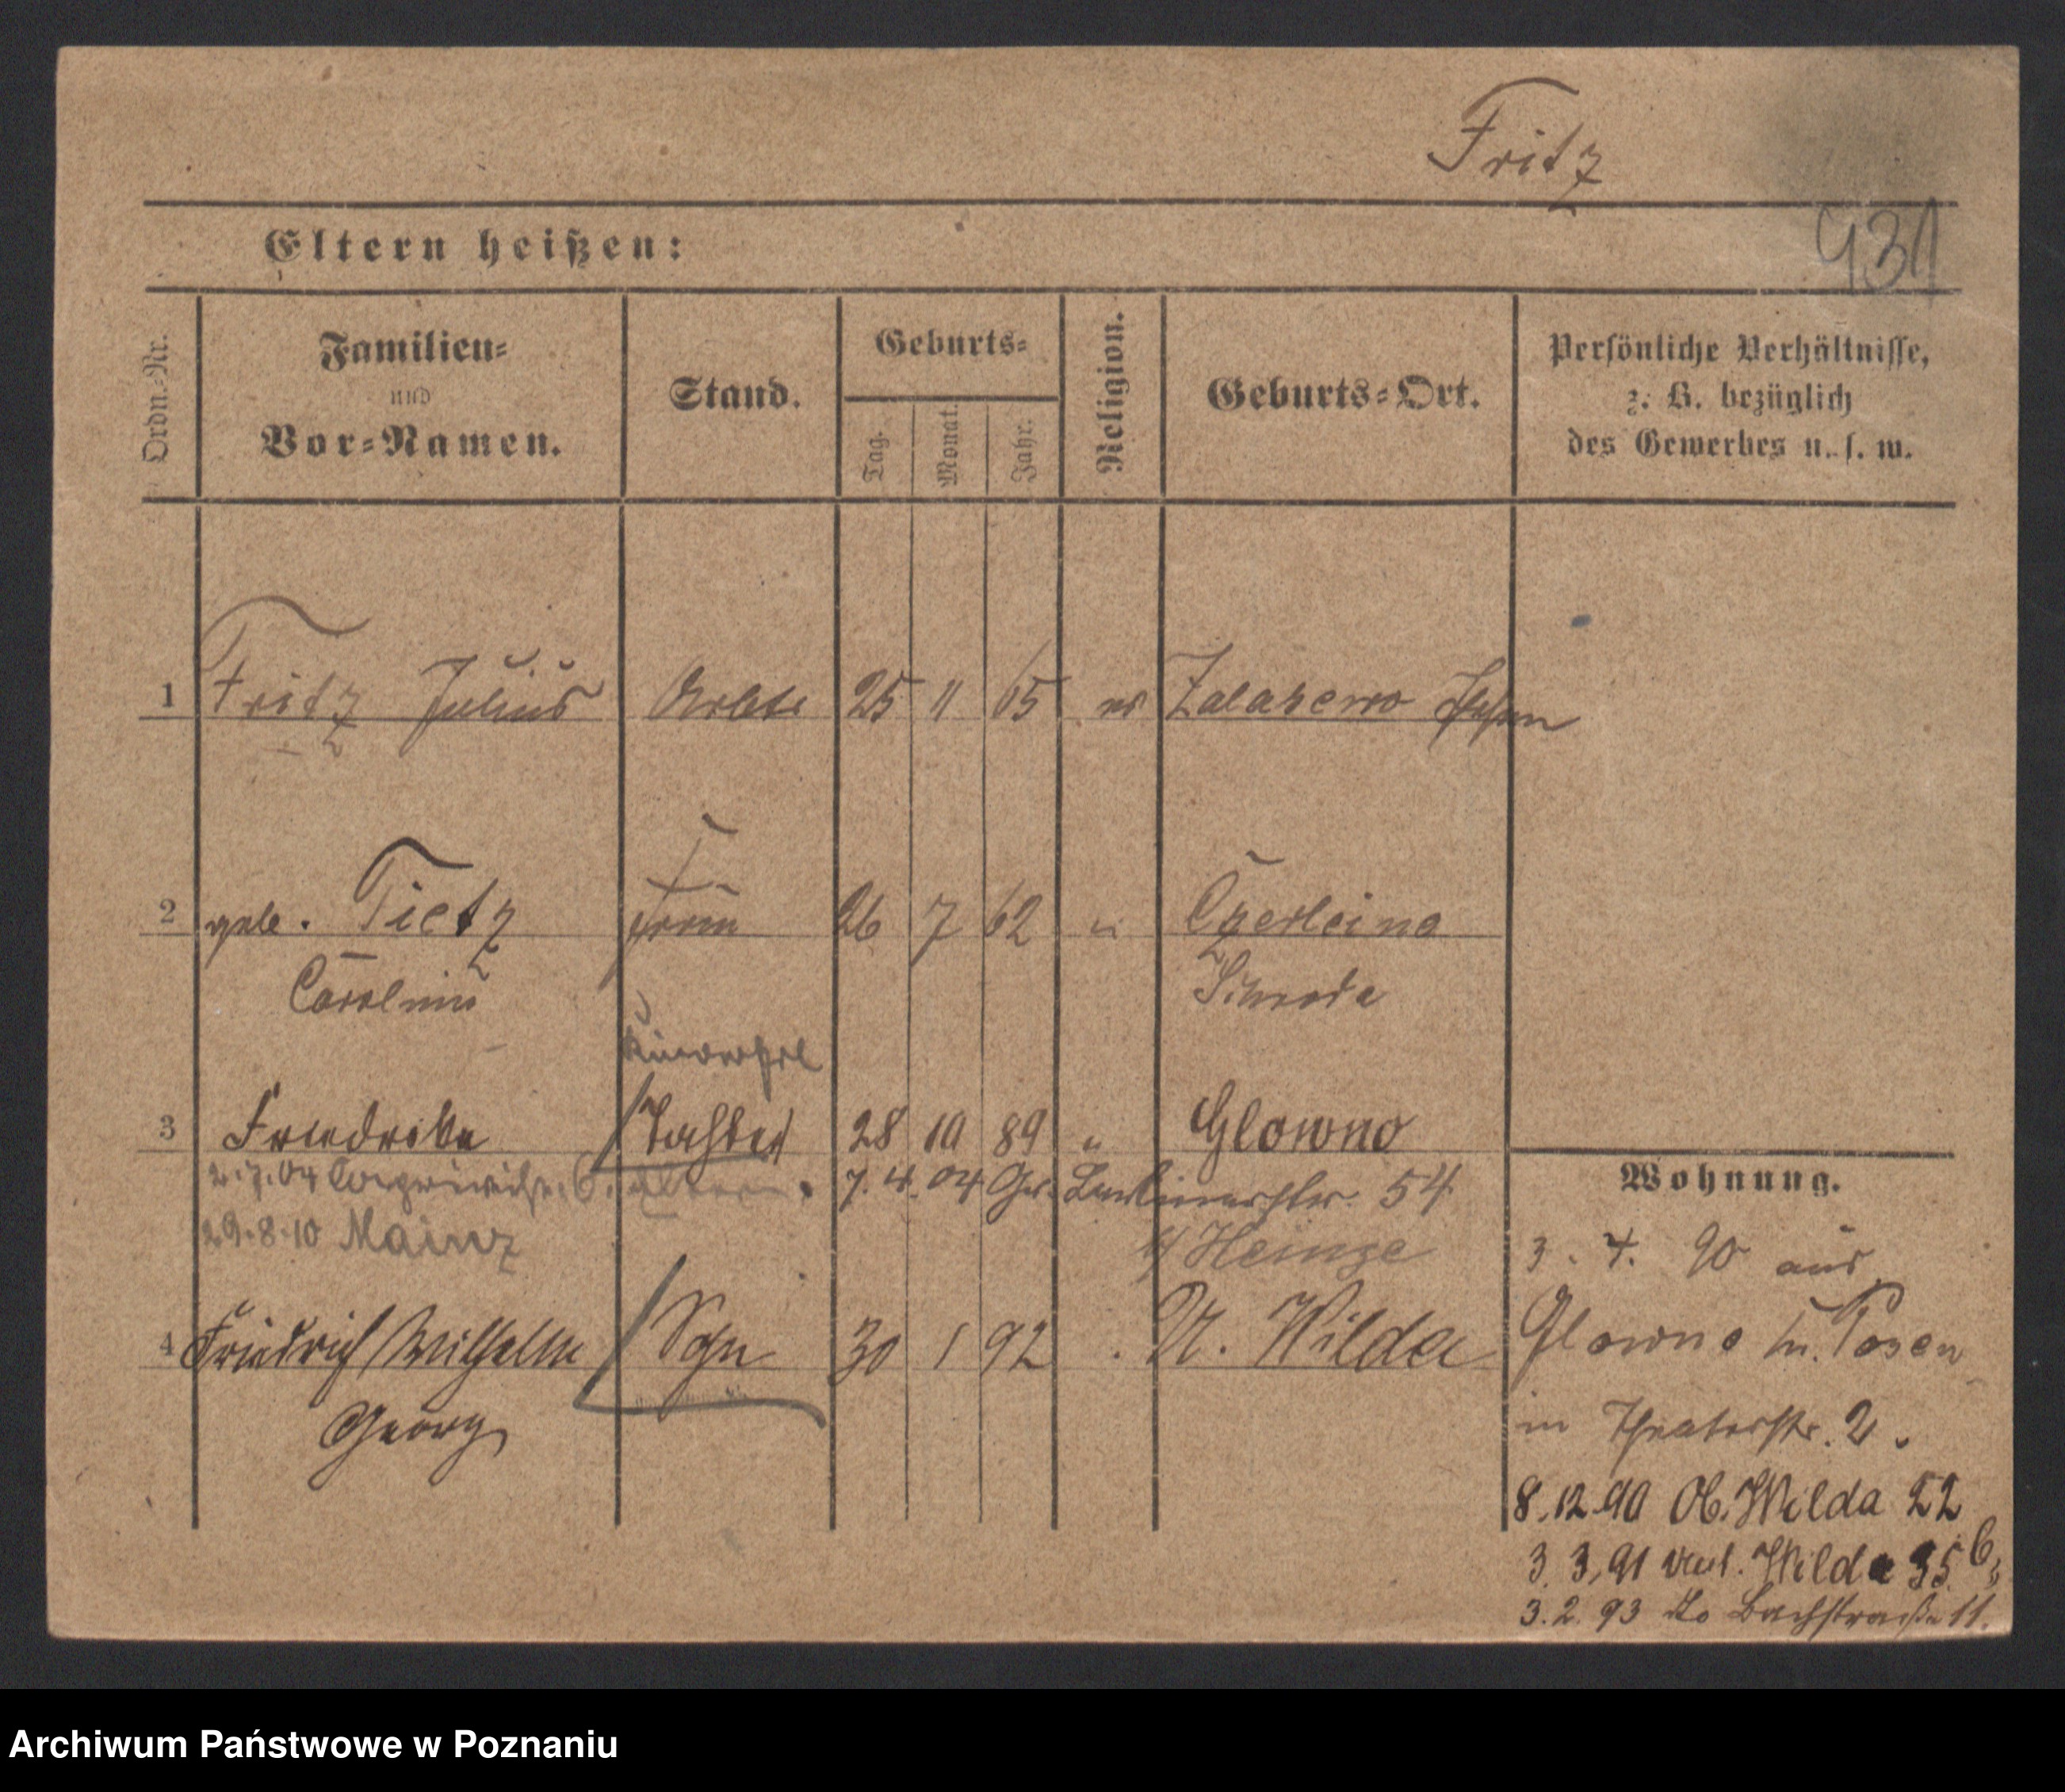 Fritz
931
Eltern heißen:
Ordn.-Nr.
Familien-
und
Vor-Namen.
Stand.
Geburts-
Tag.
Monat.
Jahr.
Religion.
Geburts-Ort.
Persönliche Verhältnisse,
z. B. bezüglich
des Gewerbes u. s. w.
1 Fritz Julius 25 11 65 Zalasewo
2 geb. Tietz Frau 26 7 62
Caroline
3 Friederike Tochter 28 10 89 " Glowno
2.7.04 7.4.04 Gr. Berlinerstr. 54
29.8.10 Mainz b/ Heinze
4 Friedrich Wilhelm Sohn 30 1 92 U. Wilda
Georg
Wohnung.
3. 4. 90 aus
Glowno b. Posen
in Theaterstr. 2.
8.12.90 Ob. Wilda 22
3.3.91 Wilda 35
3.2.93 do Bachstraße 11.
Archiwum Państwowe w Poznaniu